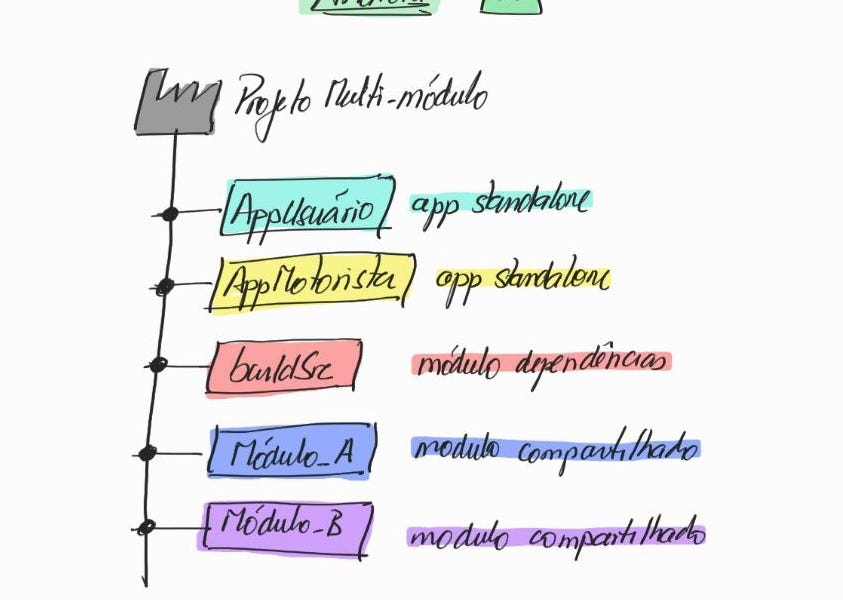 Android
Projeto Multi-módulo
AppUsuário app standalone
AppMotorista app standalone
buildSrc módulo dependências
Módulo_A modulo compartilhado
Módulo_B modulo compartilhado